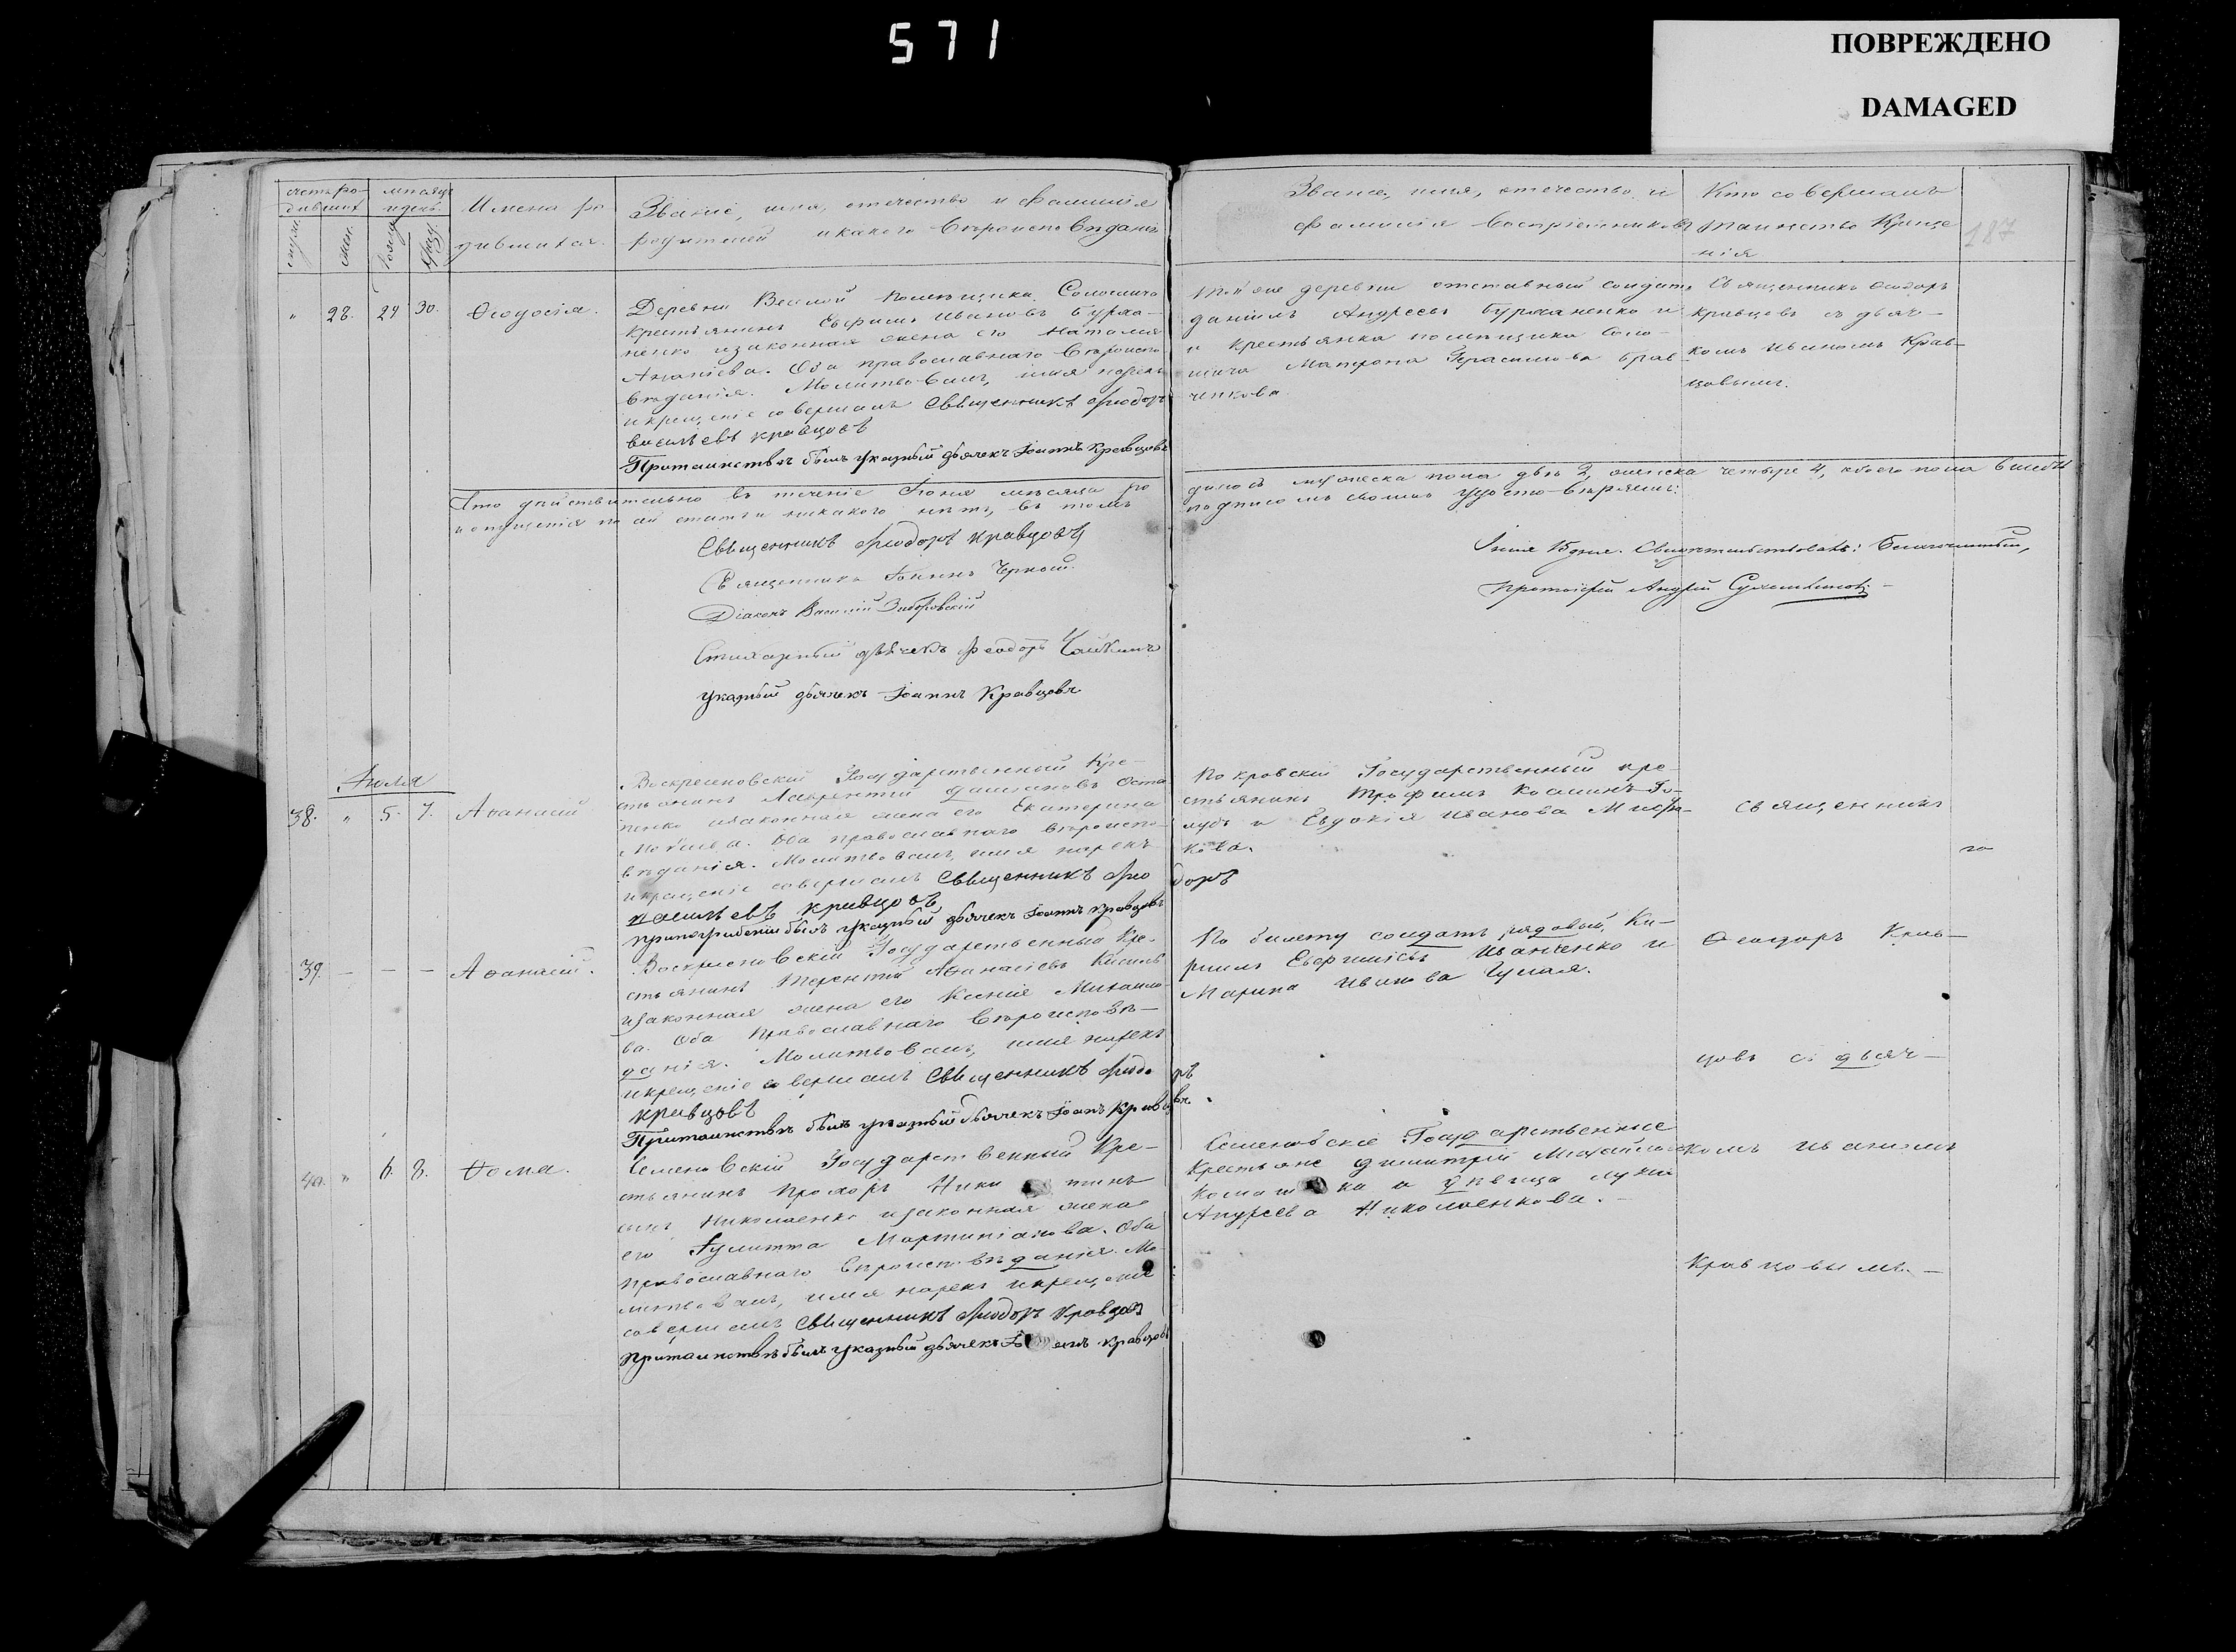 571
ПОВРЕЖДЕНО
DAMAGED
187
Имена ро
дившихся.
Званіе, имя, отечество и фамилія
родителей и какого вѣроисповѣданія
Званіе, имя, отечество и
фамилія воспріемниковъ
Кто совершалъ
таинство Креще
нія
" 28. 29 30. Ѳеодосія.
Деревни Веселой помѣщика
крестьянинъ Ивановъ
ненко и законная жена его Наталія
Ананіева. Оба православнаго вѣроиспо
вѣданія. Молитвовалъ, имя нарекъ
и крещеніе совершалъ Священникъ Ѳеодоръ
Васильевъ Кравцовъ
При таинствѣ былъ указный дьячекъ Іоаннъ Кравцовъ
той же деревни отставный солдатъ
Даніилъ Андреевъ Бурманенко и
крестьянка помѣщика Соло-
Матрона Герасимова Крав
ченкова
Священникъ Ѳеодоръ
Кравцовъ съ дьяч-
комъ Иваномъ Крав-
цовымъ.
Что дѣйствительно въ теченіе Іюня мѣсяца ро
дилось мужеска пола два 2, женска четыре 4, обоего пола
и опущенія по сей статьи никакого нѣтъ, въ томъ
подписомъ своимъ удостовѣряемъ:
Священникъ Ѳеодоръ Кравцовъ
Священникъ Іоаннъ Черной.
Діаконъ Василій
Стихарный дьячекъ Ѳеодоръ Чайкинъ
указный дьячекъ Іоаннъ Кравцовъ
Свидѣтельствовалъ: Благочинный,
протоіерей Андрей
Іюля
38. " 5. 7. Аѳанасій
Воскресеновскій Государственный Кре-
стьянинъ Лаврентій Оста
пенко и законная жена его Екатерина
Оба православнаго вѣроиспо-
вѣданія. Молитвовалъ, имя нарекъ
и крещеніе совершалъ Священникъ Ѳео
доръ
Васильевъ Кравцовъ
былъ указный дьячекъ Іоаннъ Кравцовъ
Покровскій Государственный кре-
стьянинъ Трофимъ Козминъ Го-
лубъ и Евдокія Иванова
кова.
Священникъ
39. - - - Аѳанасій.
Воскресеновскій Государственный Кре-
стьянинъ Терентій Аѳанасіевъ
и законная жена его Ксенія Михайло-
ва. Оба православнаго вѣроисповѣ-
данія. Молитвовалъ, имя нарекъ
и крещеніе совершалъ Священникъ Ѳеодо
ръ
Кравцовъ
При таинствѣ былъ указный дьячекъ Іоаннъ Кравцовъ.
По билету солдатъ рядовый, Ки-
риллъ Иванченко и
Марина Иванова
Ѳеодоръ Крав-
цовъ съ дьяч-
40. " 6. 8. Ѳома.
Семеновскій Государственный Кре-
стьянинъ Прохоръ Ники тинъ
сынъ Николаенко и законная жена
его Іулитта Мартиніанова. Оба
православнаго вѣроисповѣданія. Мо-
литвовалъ, имя нарекъ и крещеніе
совершалъ Священникъ Ѳеодоръ Кравцовъ
При таинствѣ былъ указный дьячекъ Іоаннъ Кравцовъ
Семеновскіе Государственные
Крестьяне Димитрій Михайловъ
ка и дѣвица
Андреева Николаенкова. -
комъ Иваномъ
Кравцовымъ. -